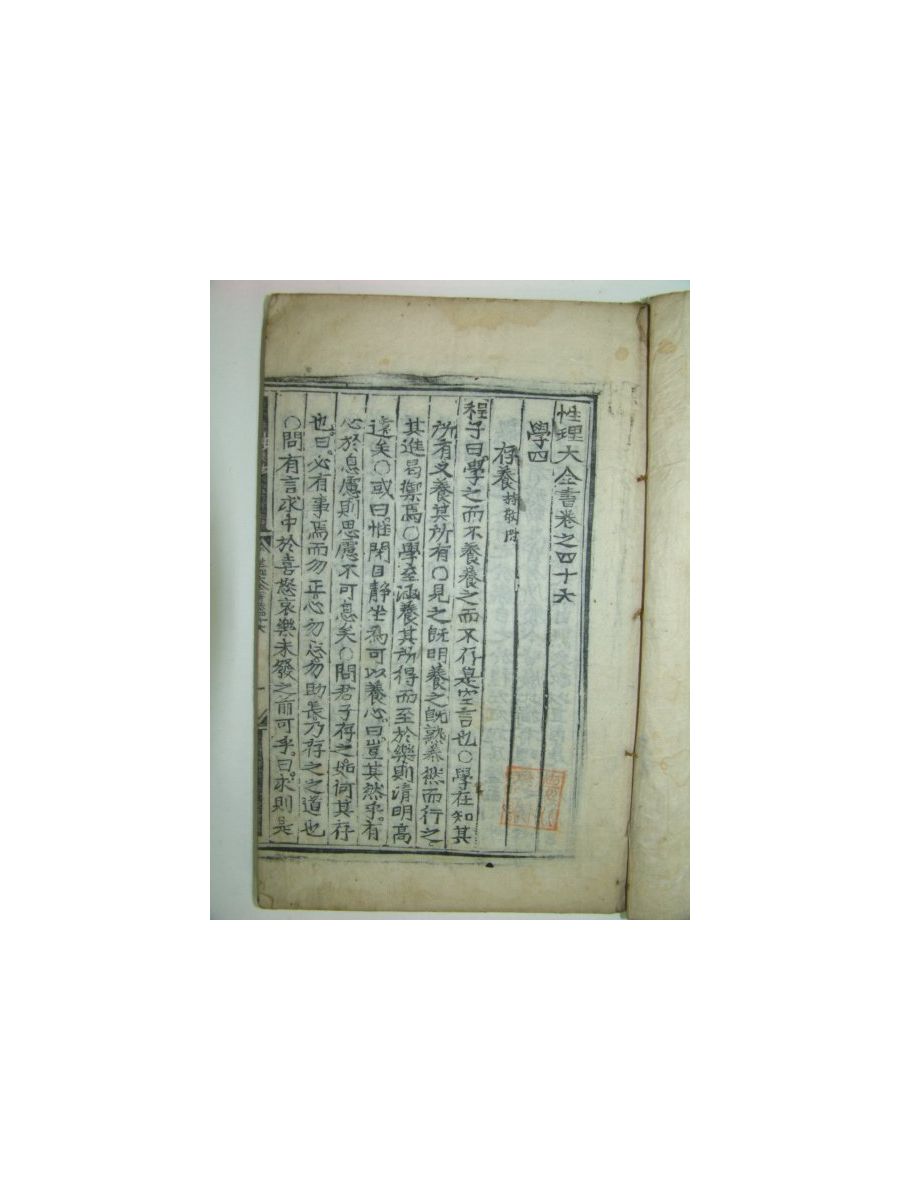 性理大全書卷之四十六
學四
存養 持敬附
程子曰學之而不養養之而不存是空言也○學在知其
所有又養其所有○見之旣明養之旣熟泰然而行之
其進曷禦焉○學至涵養其所得而至於樂則淸明高
遠矣○或曰惟閉目靜坐爲可以養心曰豈其然乎有
心於息慮則思慮不可息矣○問君子存之如何其存
也曰必有事焉而勿正心勿忘勿助長乃存之之道也
○問有言求中於喜怒哀樂未發之前可乎曰求則是